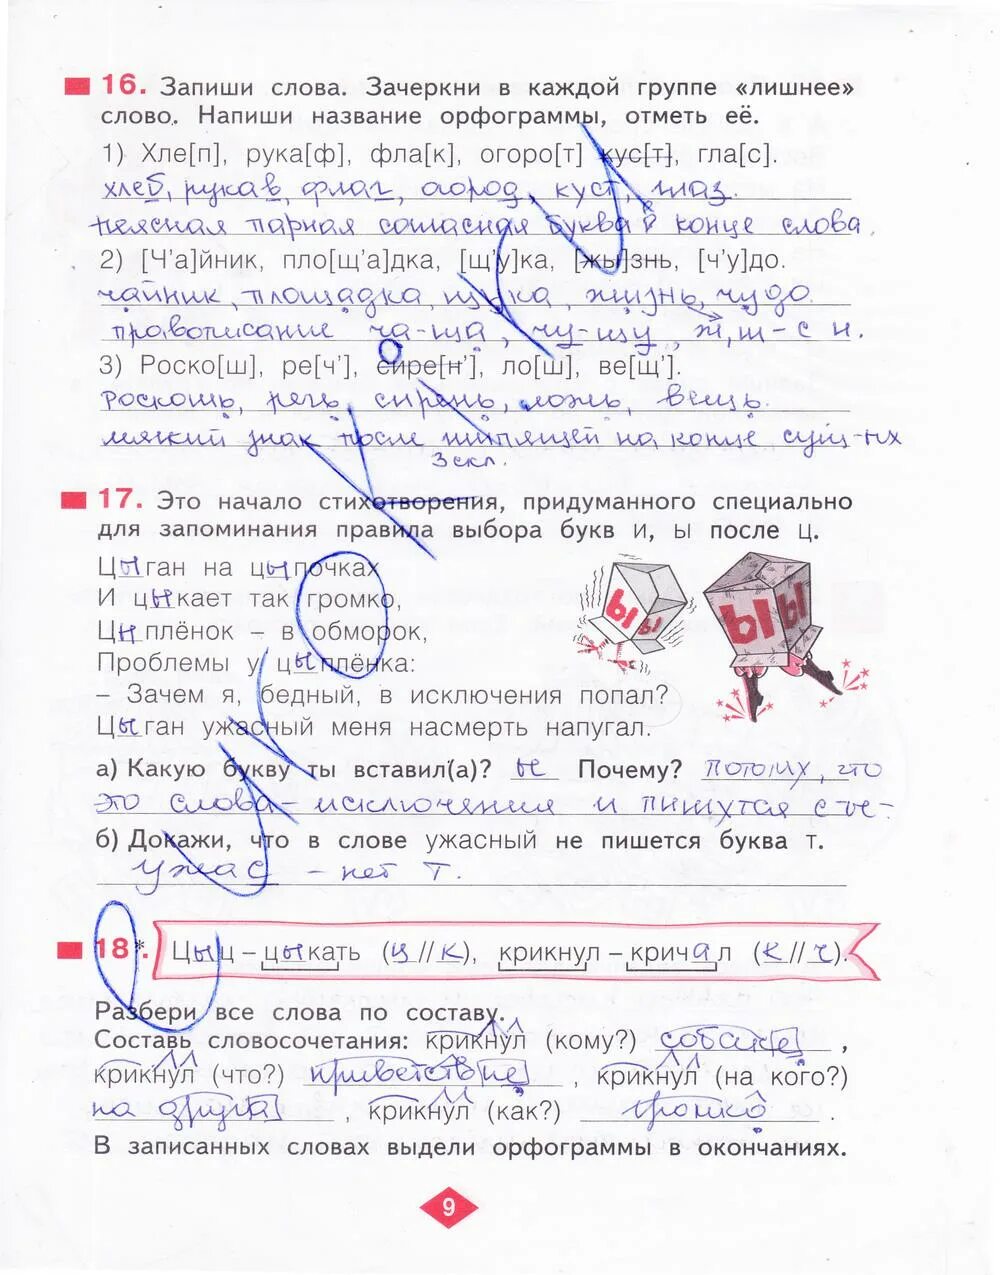 16. Запиши слова. Зачеркни в каждой группе «лишнее»
слово. Напиши название орфограммы, отметь её.
1) Хле[п], рука[ф], фла[к], огоро[т] кус[т], гла[с].
хлеб, рукав, флаг, огород, куст, глаз.
неясная парная согласная буква в конце слова.
2) [Ч'а]йник, пло[щ'а]дка, [щ'у]ка, [жы]знь, [ч'у]до.
чайник, площадка, щука, жизнь, чудо
правописание ча-ща, чу-щу, ж, ш - с и.
3) Роско[ш], ре[ч'], сире[н'], ло[ш], ве[щ'].
Роскошь, речь, сирень, ложь, вещь.
мягкий знак после шипящей на конце сущ-ных
3 скл.
17. Это начало стихотворения, придуманного специально
для запоминания правила выбора букв и, ы после ц.
Цыган на цыпочках
И цыкает так громко,
Цыплёнок – в обморок,
Проблемы у цыплёнка:
– Зачем я, бедный, в исключения попал?
Цыган ужасный меня насмерть напугал.
Ы Ы
Ы Ы
а) Какую букву ты вставил(а)? ы Почему? потому, что
это слова - исключения и пишутся с ы-
б) Докажи, что в слове ужасный не пишется буква т.
ужас - нет т.
18*. Цыц – цыкать (ц // к), крикнул – кричал (к // ч).
Разбери все слова по составу.
Составь словосочетания: крикнул (кому?) собаке,
крикнул (что?) приветствие, крикнул (на кого?)
на друга, крикнул (как?) громко.
В записанных словах выдели орфограммы в окончаниях.
9